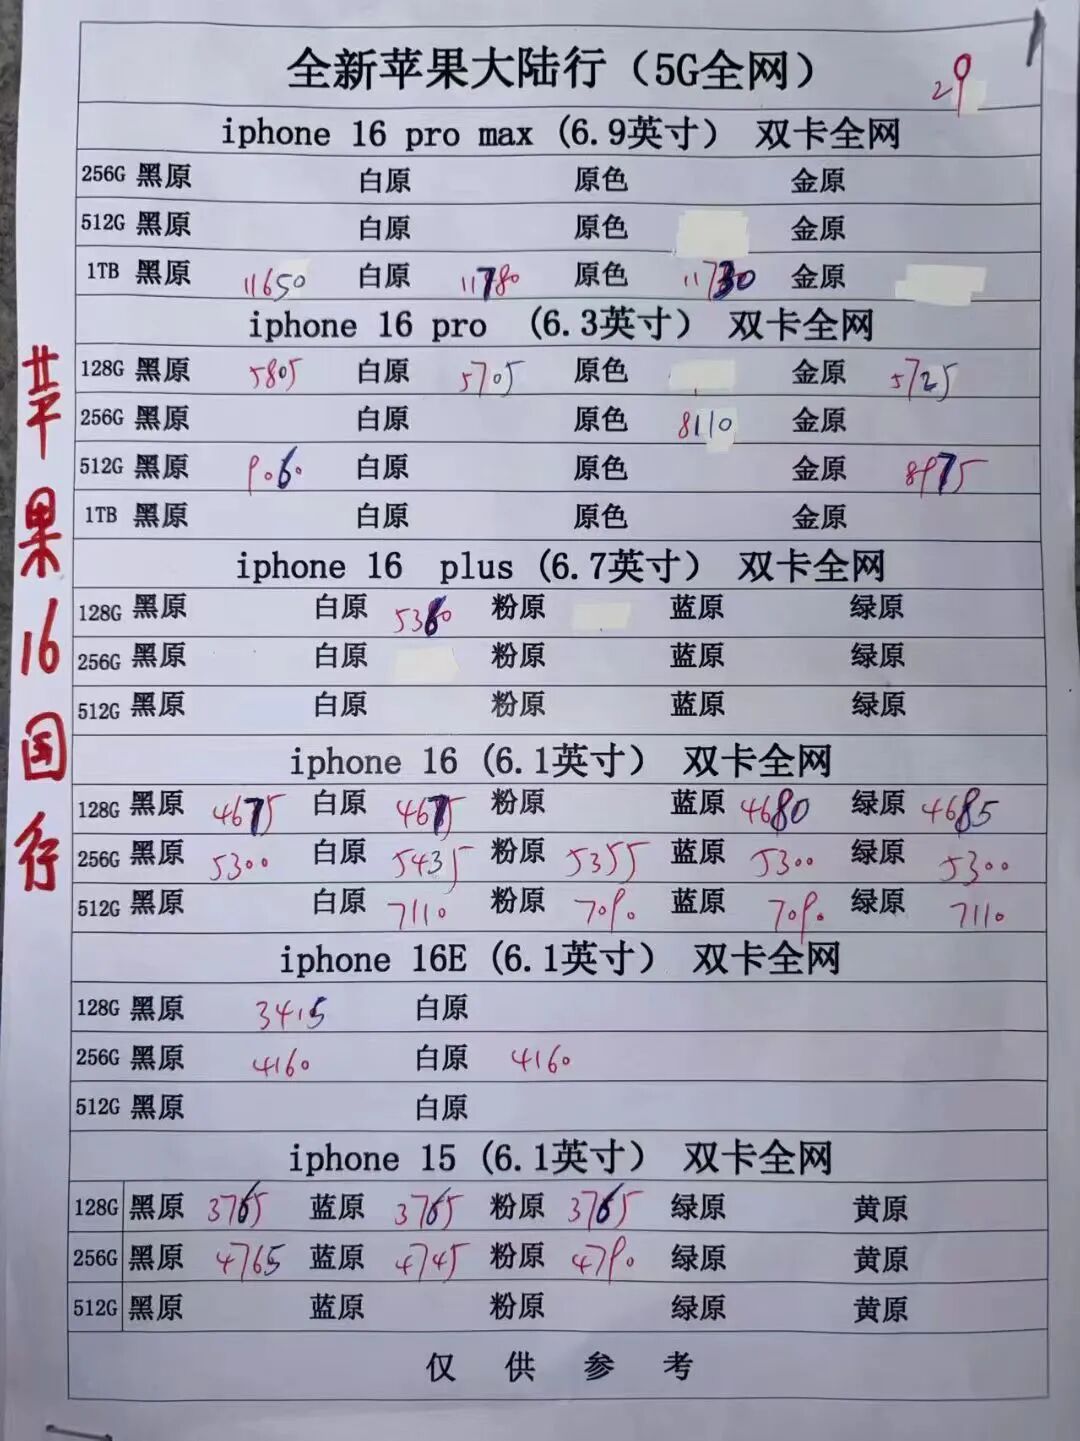 全新苹果大陆行（5G全网） 29
iphone 16 pro max (6.9英寸） 双卡全网
256G 黑原 白原 原色 金原
512G 黑原 白原 原色 金原
1TB 黑原 11650 白原 11780 原色 11730 金原
iphone 16 pro （6.3英寸） 双卡全网
128G 黑原 5805 白原 5705 原色 金原 5725
256G 黑原 白原 原色 8110 金原
512G 黑原 9060 白原 原色 金原 8975
1TB 黑原 白原 原色 金原
iphone 16 plus (6.7英寸） 双卡全网
128G 黑原 白原 5360 粉原 蓝原 绿原
256G 黑原 白原 粉原 蓝原 绿原
512G 黑原 白原 粉原 蓝原 绿原
iphone 16 (6.1英寸） 双卡全网
128G 黑原 4675 白原 4675 粉原 蓝原 4680 绿原 4685
256G 黑原 5300 白原 5435 粉原 5355 蓝原 5300 绿原 5300
512G 黑原 白原 7110 粉原 7090 蓝原 7090 绿原 7110
iphone 16E (6.1英寸） 双卡全网
128G 黑原 3415 白原
256G 黑原 4160 白原 4160
512G 黑原 白原
iphone 15 (6.1英寸） 双卡全网
128G 黑原 3765 蓝原 3765 粉原 3765 绿原 黄原
256G 黑原 4765 蓝原 4745 粉原 4790 绿原 黄原
512G 黑原 蓝原 粉原 绿原 黄原
仅 供 参 考
苹果16国行